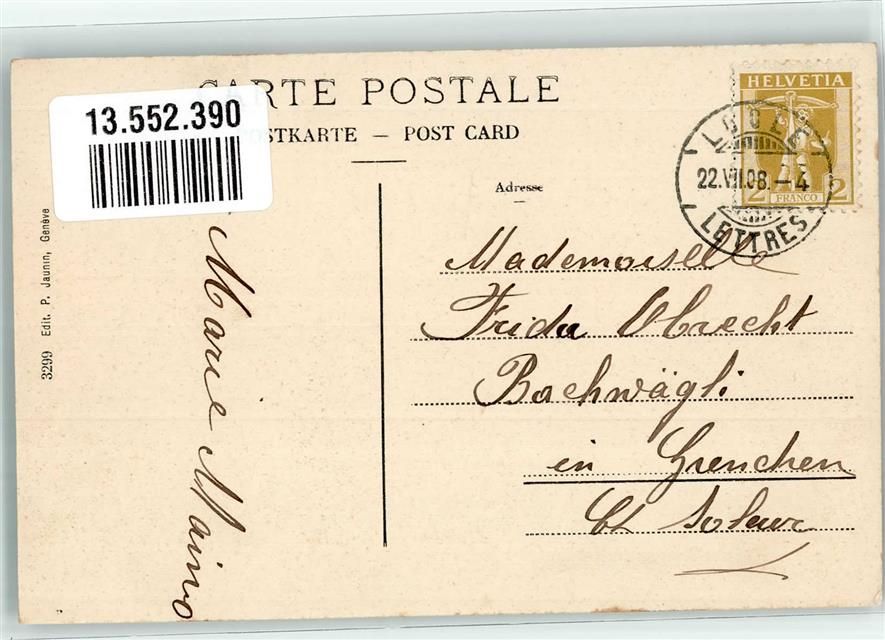 CARTE POSTALE
13.552.390
POSTKARTE — POST CARD
Adresse
HELVETIA
2 FRANCO 2
LOCLE
22.VII.08.—4
LETTRES
Mademoiselle
Frida Obrecht
Bachwägli
in Grenchen
Ct Soleure
Marie Maino
3299 Edit. P. Jaunin, Genève